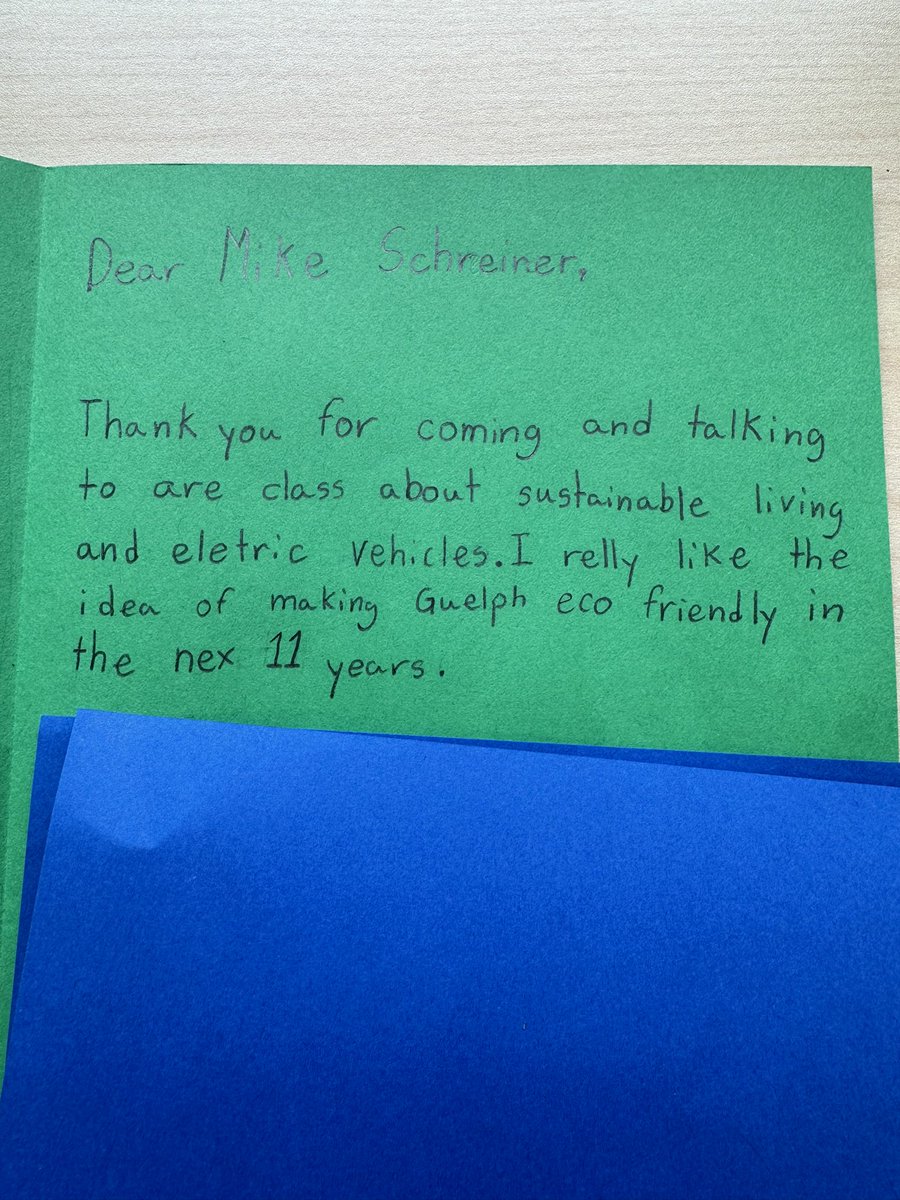 Dear Mike Schreiner,
Thank you for coming and talking
to are class about sustainable living
and eletric vehicles. I relly like the
idea of making Guelph eco friendly in
the nex 11 years.